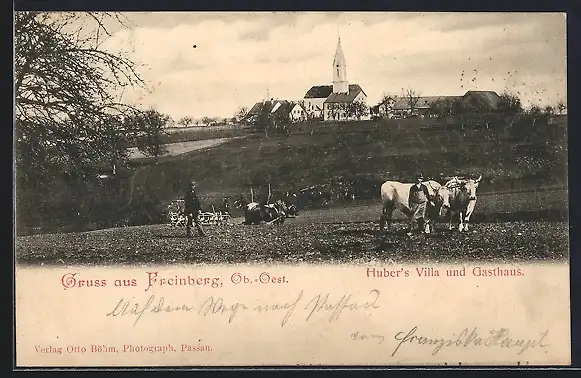 Gruss aus Freinberg, Ob.-Oest.
Huber's Villa und Gasthaus.
Auf dem Wege nach Passau
von Franziska Haupt
Verlag Otto Böhm, Photograph, Passau.